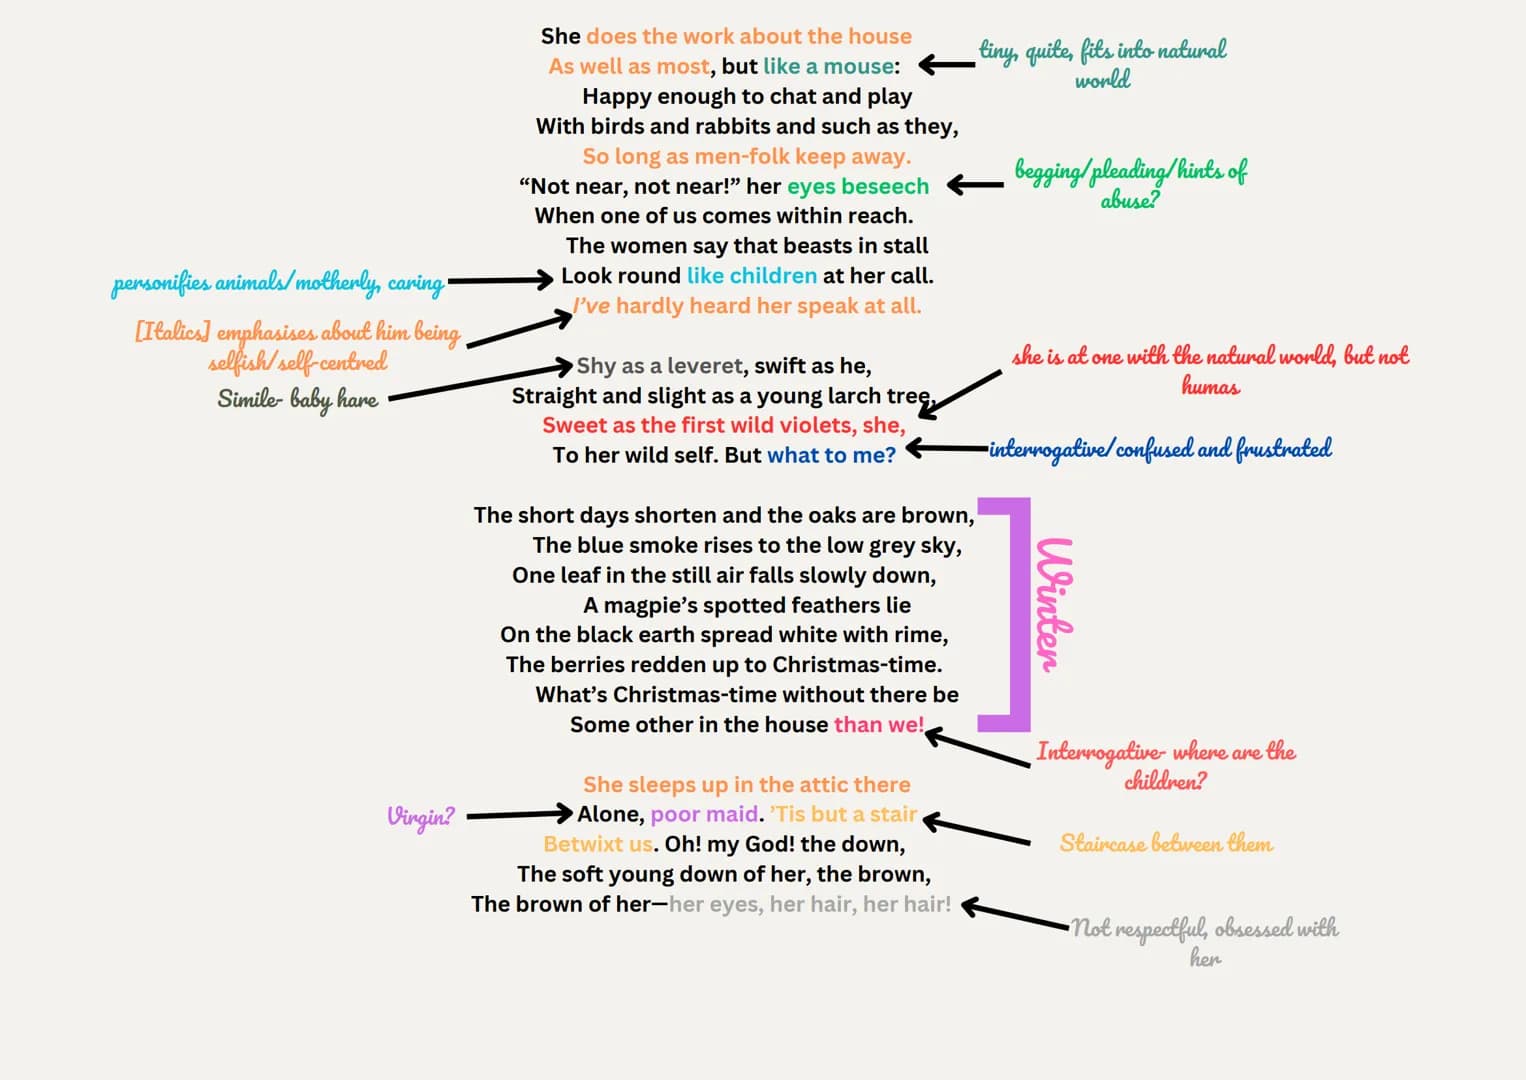 She does the work about the house
As well as most, but like a mouse:
tiny, quite, fits into natural
world
Happy enough to chat and play
With birds and rabbits and such as they,
So long as men-folk keep away.
“Not near, not near!” her eyes beseech
begging/pleading/hints of
abuse?
When one of us comes within reach.
The women say that beasts in stall
Look round like children at her call.
personifies animals/motherly, caring
I’ve hardly heard her speak at all.
[Italics] emphasises about him being
selfish/self-centred
Shy as a leveret, swift as he,
Simile- baby hare
Straight and slight as a young larch tree,
Sweet as the first wild violets, she,
she is at one with the natural world, but not
humas
To her wild self. But what to me?
interrogative/confused and frustrated
The short days shorten and the oaks are brown,
The blue smoke rises to the low grey sky,
One leaf in the still air falls slowly down,
A magpie’s spotted feathers lie
On the black earth spread white with rime,
The berries redden up to Christmas-time.
What’s Christmas-time without there be
Some other in the house than we!
Winter
Interrogative- where are the
children?
She sleeps up in the attic there
Alone, poor maid. ’Tis but a stair
Virgin?
Betwixt us. Oh! my God! the down,
Staircase between them
The soft young down of her, the brown,
The brown of her—her eyes, her hair, her hair!
Not respectful, obsessed with
her